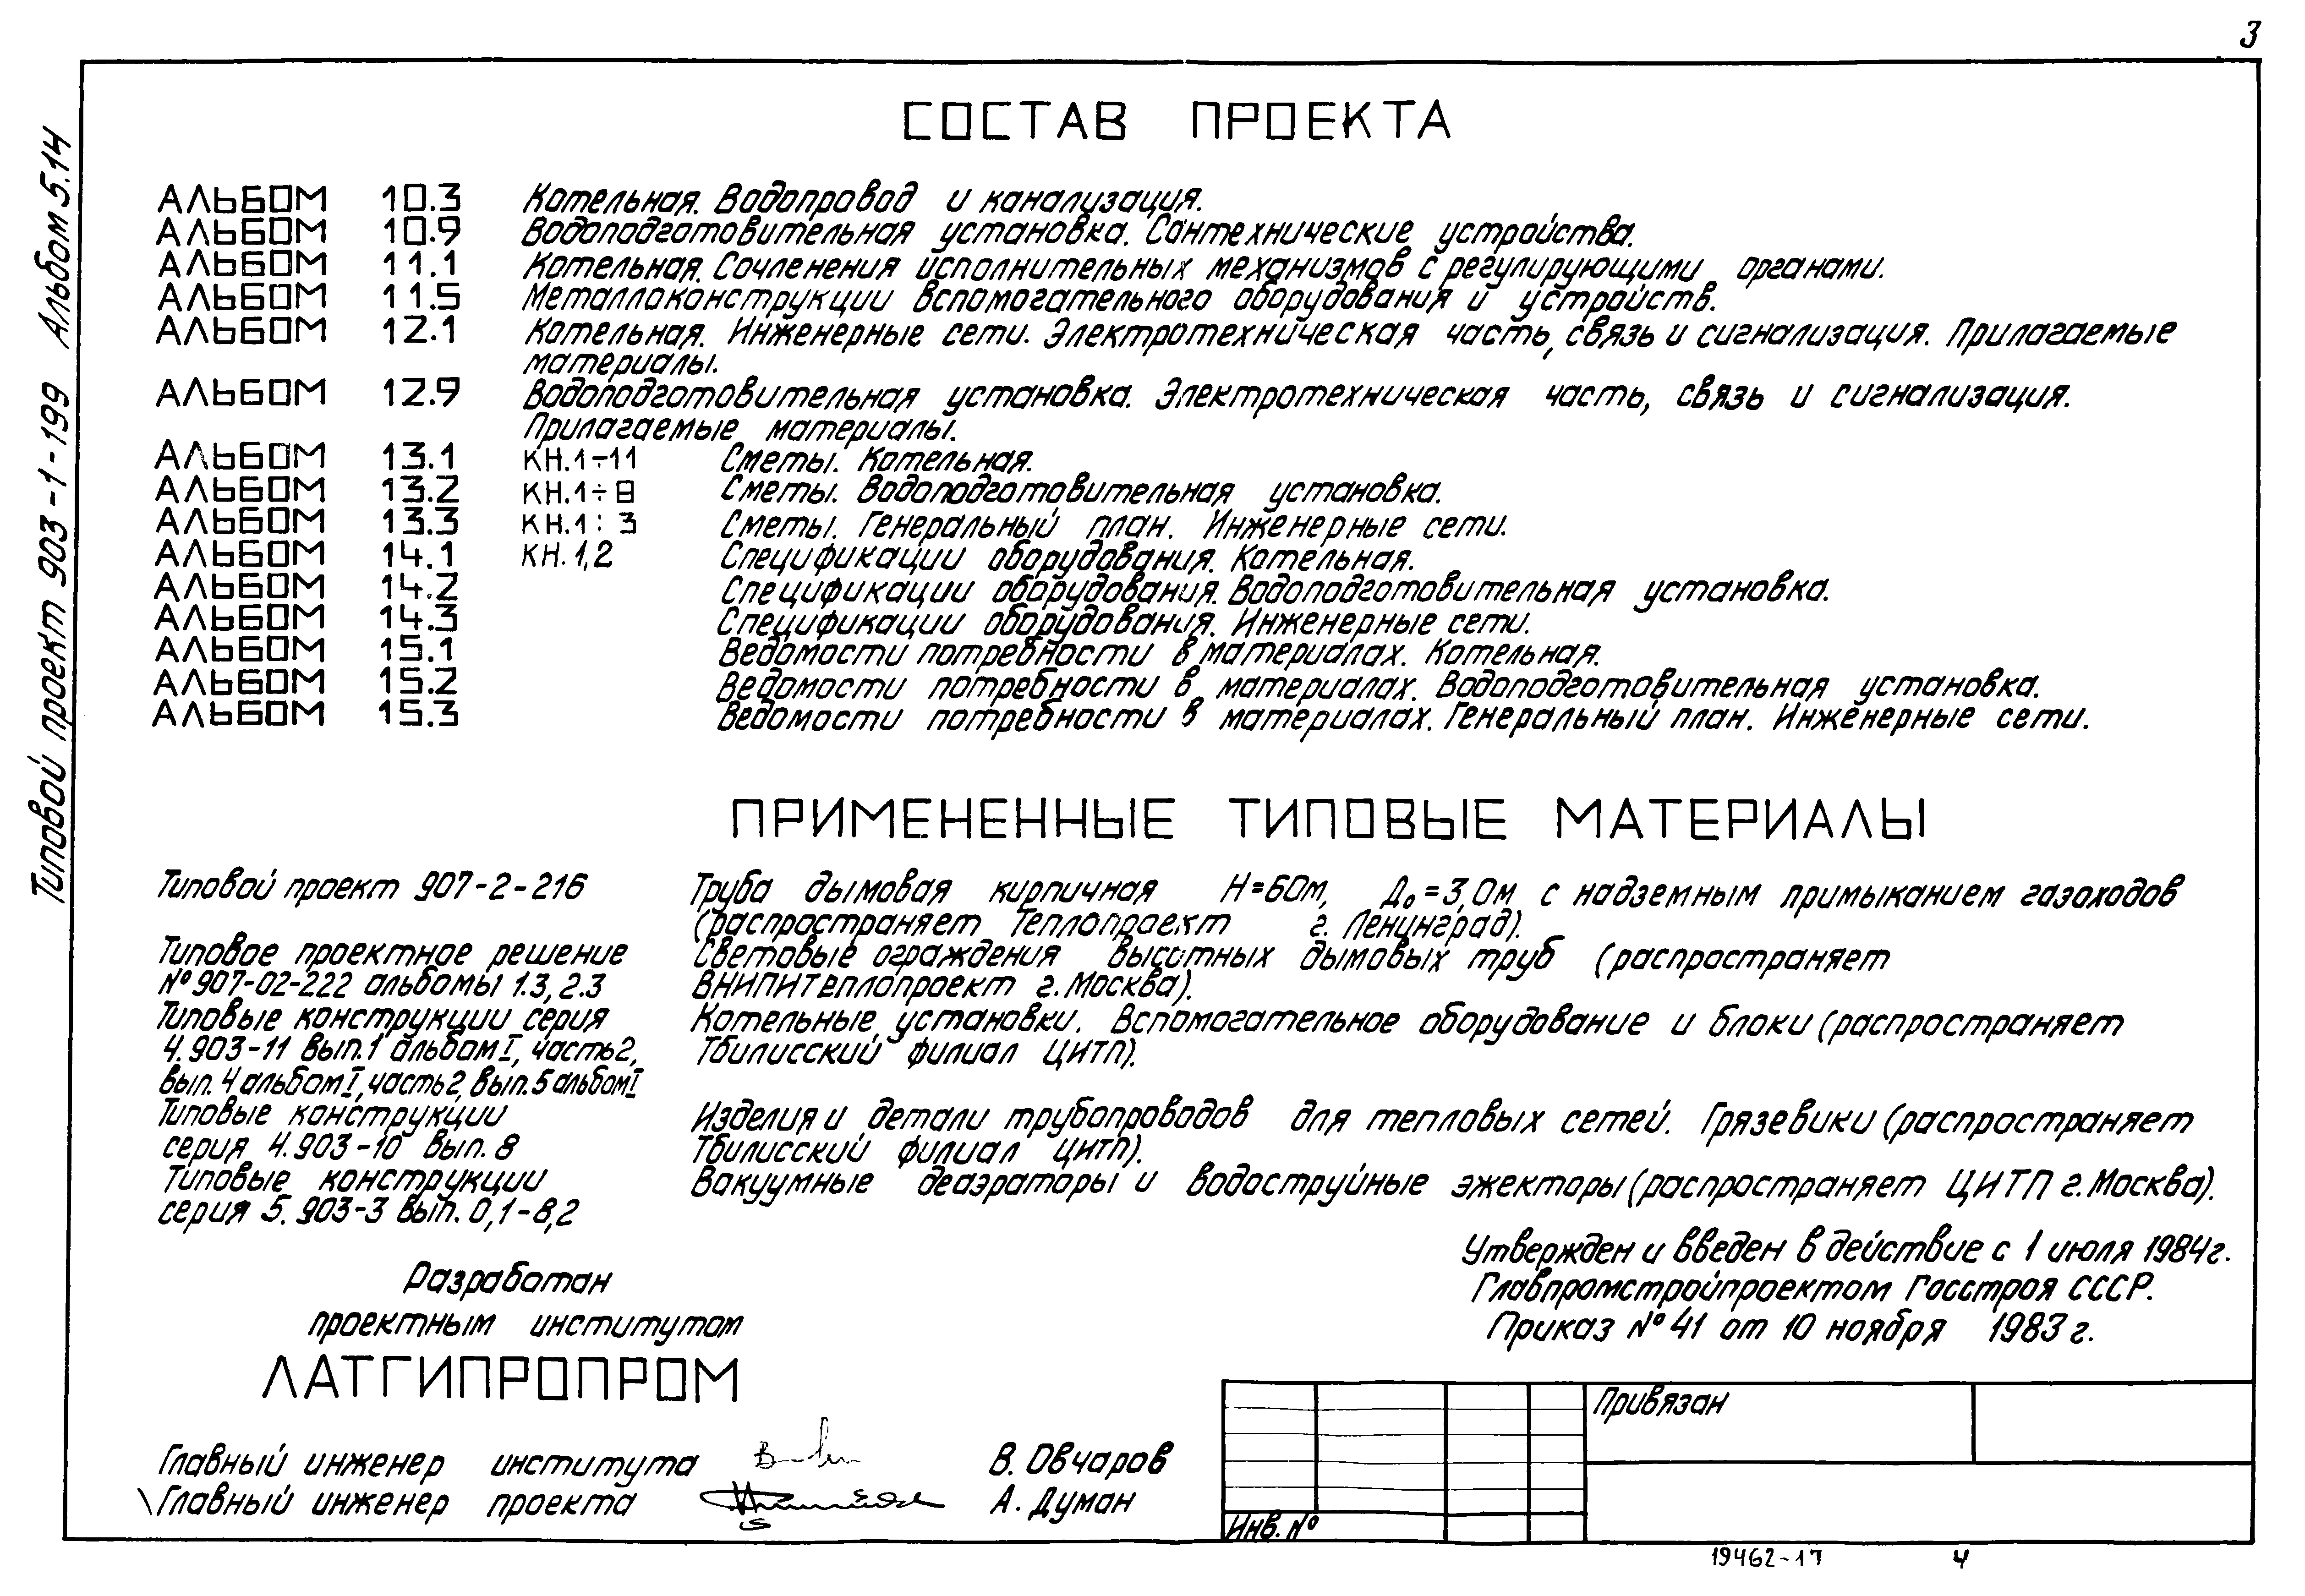 3
Типовой проект 903-1-199 Альбом 5.14
СОСТАВ ПРОЕКТА
АЛЬБОМ 10.3 Котельная. Водопровод и канализация.
АЛЬБОМ 10.9 Водоподготовительная установка. Сантехнические устройства.
АЛЬБОМ 11.1 Котельная. Сочленения исполнительных механизмов с регулирующими органами.
АЛЬБОМ 11.5 Металлоконструкции вспомогательного оборудования и устройств.
АЛЬБОМ 12.1 Котельная. Инженерные сети. Электротехническая часть, связь и сигнализация. Прилагаемые
материалы.
АЛЬБОМ 12.9 Водоподготовительная установка. Электротехническая часть, связь и сигнализация.
Прилагаемые материалы.
АЛЬБОМ 13.1 КН.1÷11 Сметы. Котельная.
АЛЬБОМ 13.2 КН.1÷8 Сметы. Водоподготовительная установка.
АЛЬБОМ 13.3 КН.1:3 Сметы. Генеральный план. Инженерные сети.
АЛЬБОМ 14.1 КН.1,2 Спецификации оборудования. Котельная.
АЛЬБОМ 14.2 Спецификации оборудования. Водоподготовительная установка.
АЛЬБОМ 14.3 Спецификации оборудования. Инженерные сети.
АЛЬБОМ 15.1 Ведомости потребности в материалах. Котельная.
АЛЬБОМ 15.2 Ведомости потребности в материалах. Водоподготовительная установка.
АЛЬБОМ 15.3 Ведомости потребности в материалах. Генеральный план. Инженерные сети.
ПРИМЕНЕННЫЕ ТИПОВЫЕ МАТЕРИАЛЫ
Типовой проект 907-2-216 Труба дымовая кирпичная Н=60м, До=3,0м с надземным примыканием газоходов
(распространяет Теплопроект г. Ленинград).
Типовое проектное решение Световые ограждения высотных дымовых труб (распространяет
№ 907-02-222 альбомы 1.3, 2.3 ВНИПИТеплопроект г. Москва).
Типовые конструкции серия Котельные установки. Вспомогательное оборудование и блоки (распространяет
4.903-11 вып.1 альбом I, часть 2, Тбилисский филиал ЦИТП).
вып. 4 альбом I, часть 2, вып. 5 альбом I
Типовые конструкции Изделия и детали трубопроводов для тепловых сетей. Грязевики (распространяет
серия 4.903-10 вып. 8 Тбилисский филиал ЦИТП).
Типовые конструкции Вакуумные деаэраторы и водоструйные эжекторы (распространяет ЦИТП г. Москва).
серия 5.903-3 вып. 0,1-8,2
Утвержден и введен в действие с 1 июля 1984г.
Главпромстройпроектом Госстроя СССР.
Приказ № 41 от 10 ноября 1983 г.
Разработан
проектным институтом
ЛАТГИПРОПРОМ
Главный инженер института В. Овчаров
Главный инженер проекта А. Думан
Привязан
Инв. №
19462-17 4